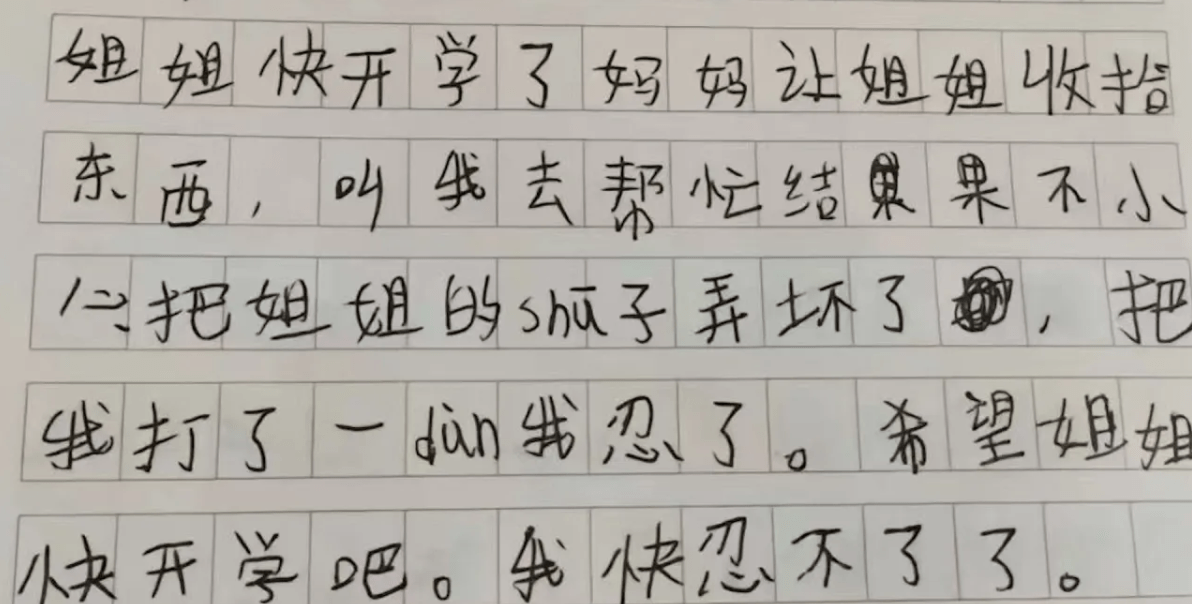 姐姐快开学了妈妈让姐姐收拾
东西，叫我去帮忙结果不小
心把姐姐的shū子弄坏了，把
我打了一dùn我忍了。希望姐姐
快开学吧。我快忍不了了。